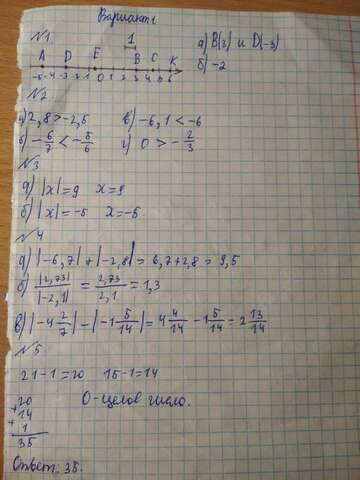 Вариант 1
№1
1
A D E B C K
-5 -4 -3 -2 -1 0 1 2 3 4 5 6
а) B(3) и D(-3)
б) -2
№2
а) 2,8 > -2,5 в) -6,1 < -6
б) -6/7 < -5/6 г) 0 > -2/3
№3
а) |x| = 9 x = 9
б) |x| = -5 x = -5
№4
а) |-6,7| + |-2,8| = 6,7 + 2,8 = 9,5
б) |2,73| / |-2,1| = 2,73 / 2,1 = 1,3
в) |-4 2/7| - |-1 5/14| = 4 4/14 - 1 5/14 = 2 13/14
№5
21 - 1 = 20 15 - 1 = 14
20
+ 14
+ 1
35
0 - целое число.
Ответ: 35.